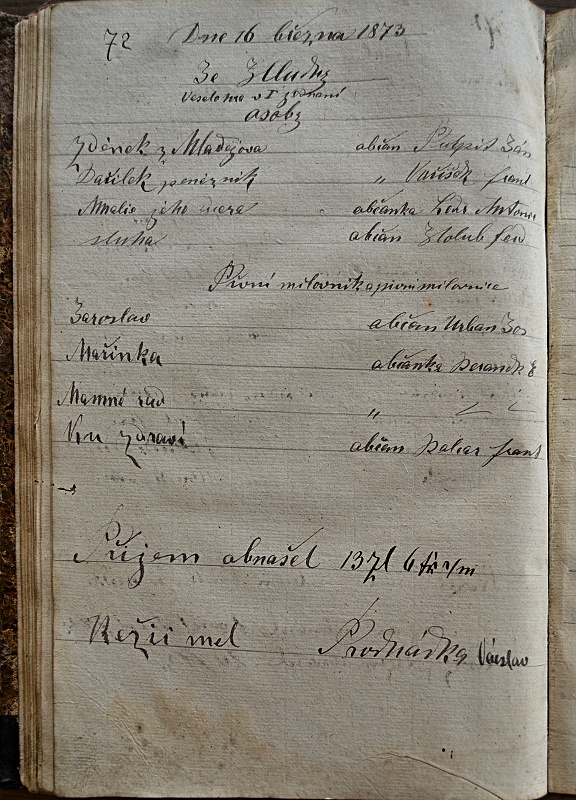 72 Dne 16 března 1873
Ze Zlladky
Veselohra v I jednání
osoby
Zdének z Mladějova občan Pulpit Ján
Dařilek peněžnik „ Vařišek frant
Amalie jeho dcera občanka
sluha občan Zlolub ferd
První milovnik a první milovnice
Jaroslav občan Urban Jos
Mařinka občanka
Mamně rád „
občan frant
Přijem obnašel 13 zl 6
Režii mel Prochádka Váeslav